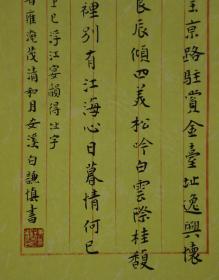 玉京路駐賞金臺址逸興懷
良辰傾四美松吟白雲際桂馥
裡別有江海心日暮情何已
上巳浮江宴韻得址字
著雍淹茂清和月安溪白謙慎書